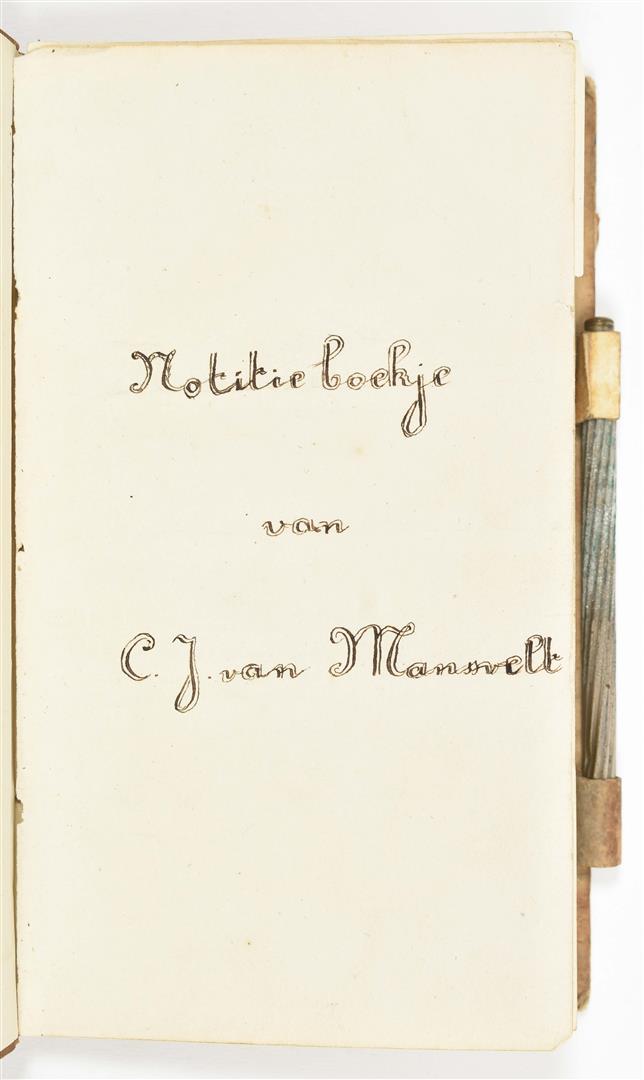 Notitie boekje
van
C. J. van Mansvelt